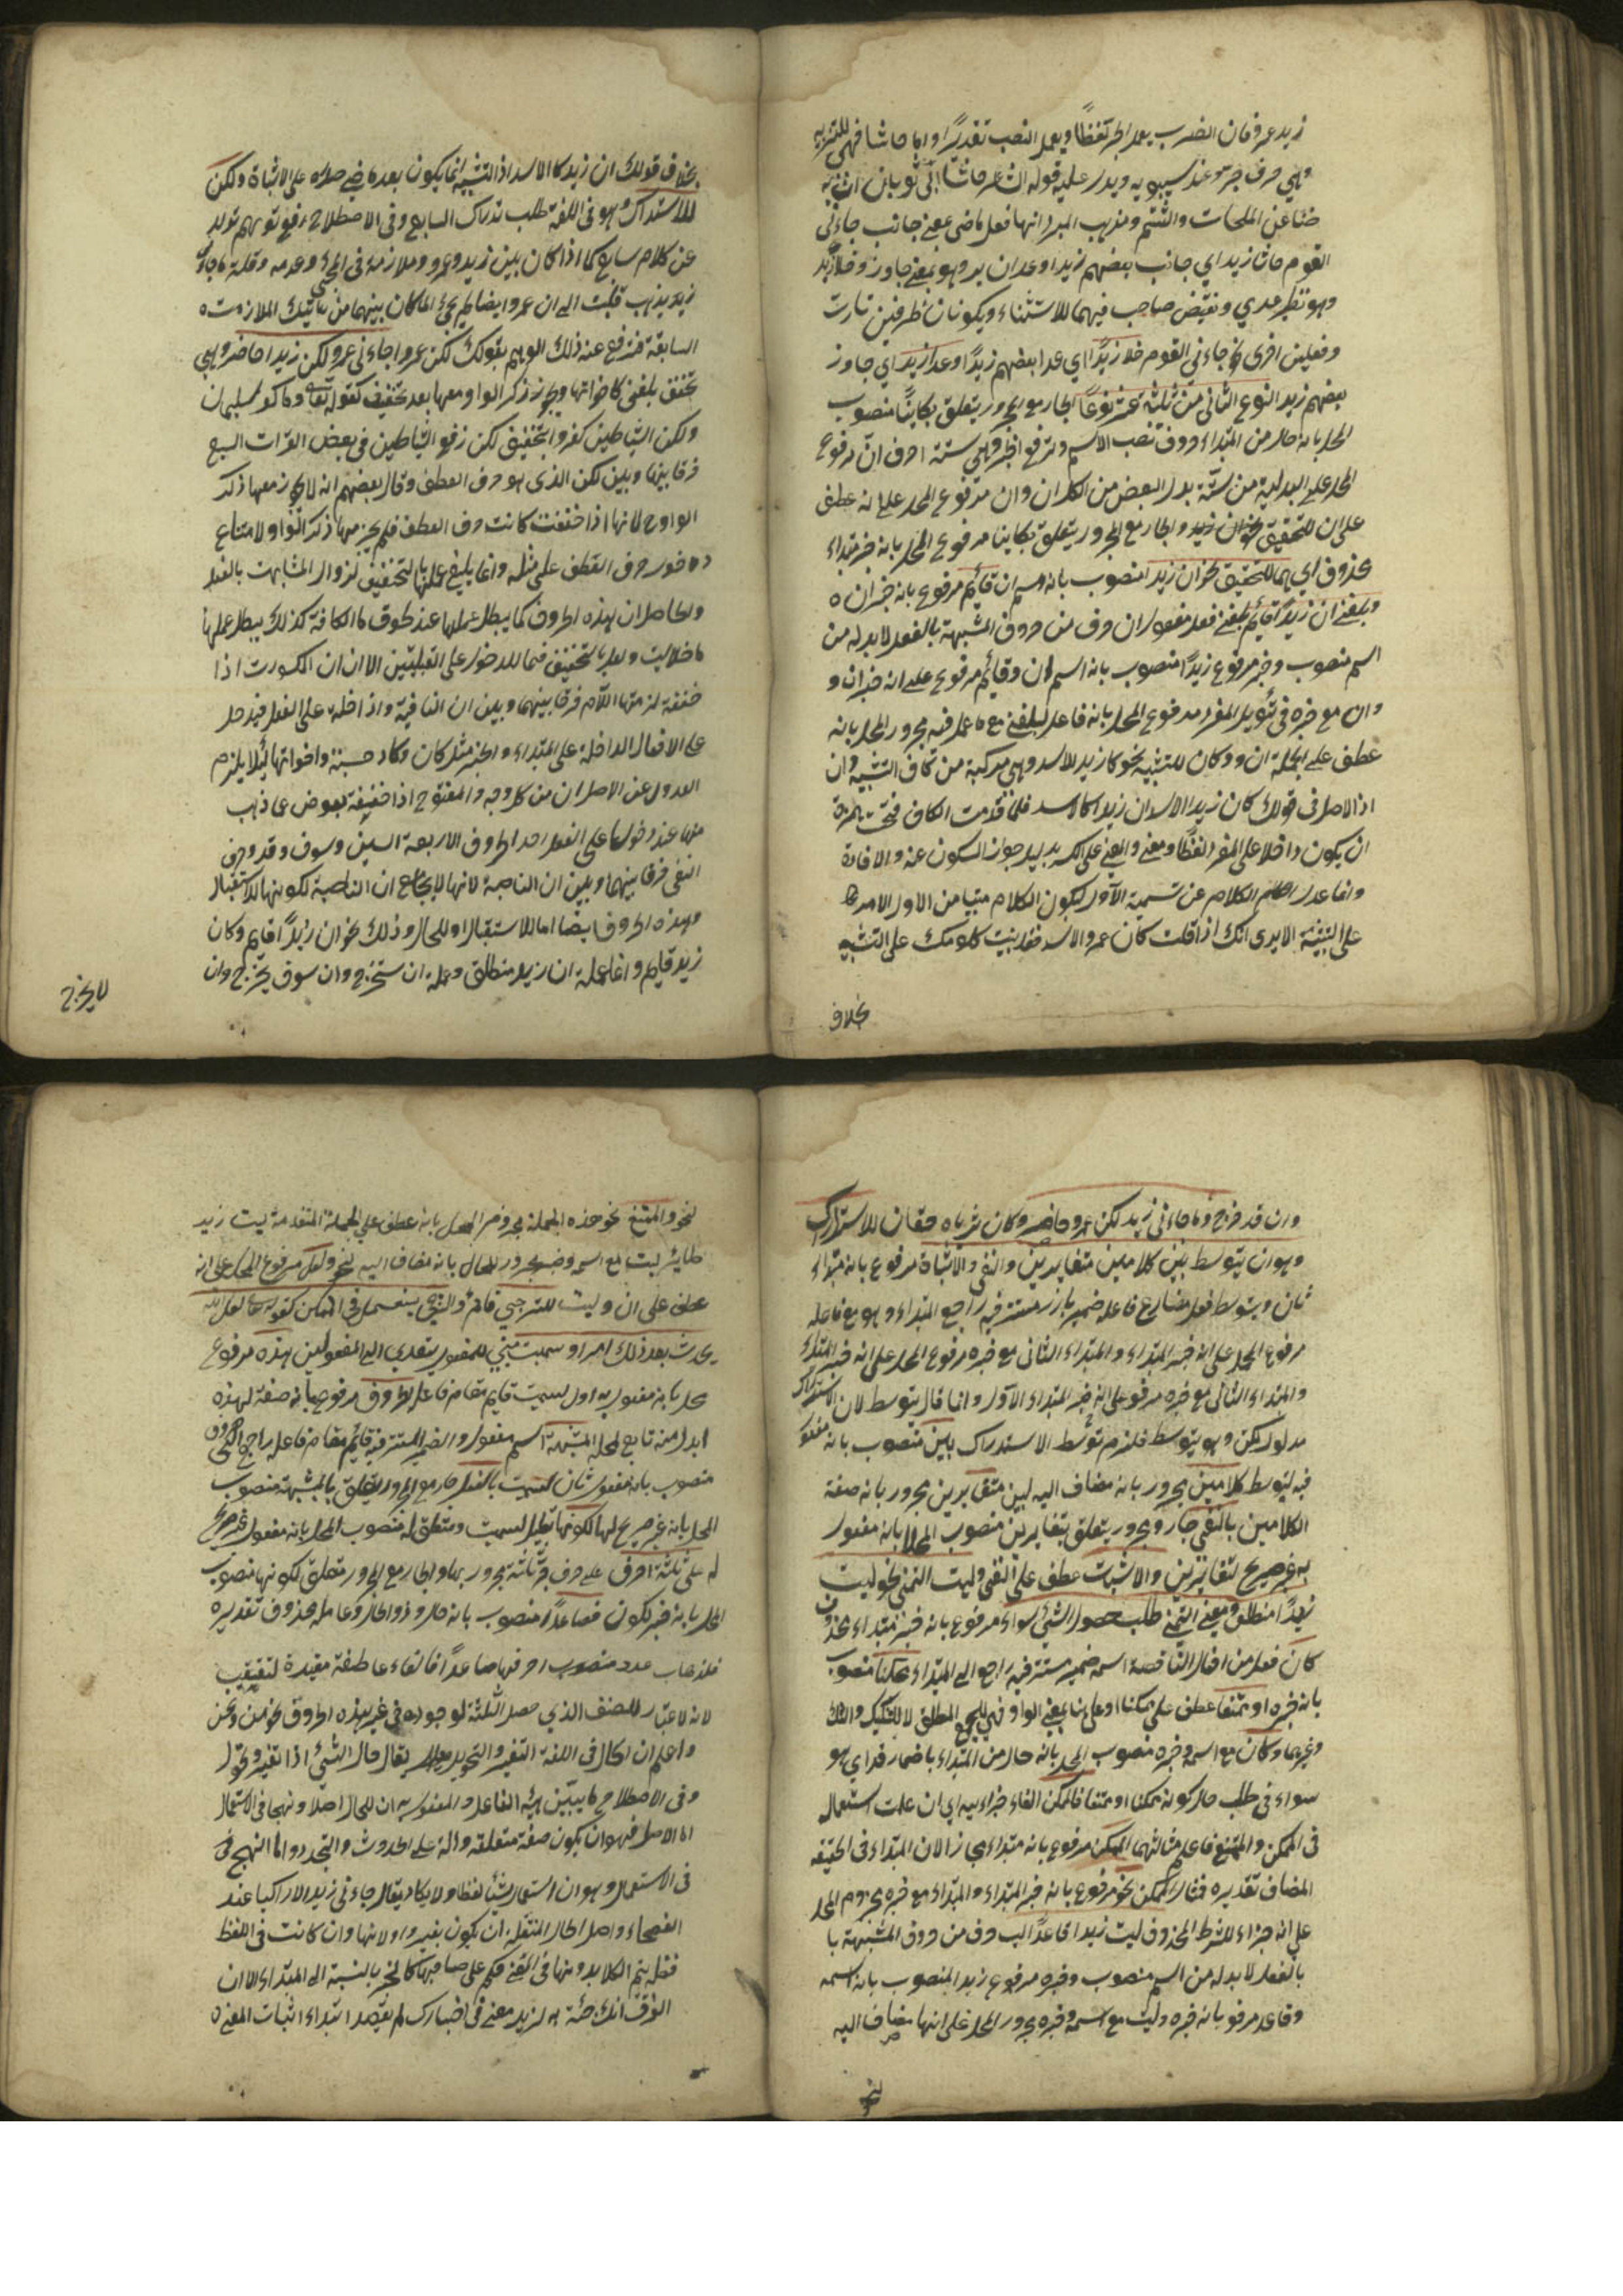 زيد عمرو فان الضرب يعمل الجر لفظا ويعمل النصب تقديرا واما حاشا فهي للتنزيه
وهي حرف جر عند سيبويه ويدل عليه قوله الشاعر حاشا ابي ثوبان ان به
ضنا عن الملحات والشتم ومذهب المبرد انها فعل ماضي بمعنى جانب جاءني
القوم حاشا زيدا اي جانب بعضهم زيدا وعدا ان بر وهو بمعنى جاوز وخلا زيد
وهو نظير عدي ونقيض صاحب فيهما للاستثناء ويكونان ظرفين تارت
وفعلين اخرى نحو جاءني القوم خلا زيدا اي عدا بعضهم زيدا وعدا زيدا اي جاوز
بعضهم زيدا النوع الثاني من ثلثة عشر نوعا الجار مع المجرور يتعلق بكاينا منصوب
المحل بانه حال من المبتداء حروف تنصب الاسم وترفع الخبر وهي ستة احرف ان مرفوع
المحل على البدلية من ستة بدل البعض من الكل ان وان مرفوع المحل على انه عطف
على ان للتحقيق نحو ان زيد والجار مع المجرور يتعلق بكاينا مرفوع المحل بانه خبر مبتداء
محذوف اي هما للتحقيق نحو ان زيدا منصوب بانه اسم ان قائم مرفوع بانه خبر ان
وبلغني ان زيدا قائم بلغني فعل مفعول ان حرف من حروف المشبهة بالفعل لا بد له من
اسم منصوب وخبر مرفوع زيدا منصوب بانه اسم ان وقائم مرفوع على انه خبر ان و
وان مع خبره في تأويل المفرد مرفوع المحل بانه فاعل لبلغني مع ما عمل فيه مجرور المحل بانه
عطف على الجملة ان ووكان للتشبيه نحو كان زيد الاسد وهي مركبة من كاف التشبيه وان
اذ الاصل في قولك كان زيدا الاسد ان زيدا كالاسد فلما قدمت الكاف فتحت الهمزة
ان يكون داخلا على المفرد لفظا ومعنى والمعنى على الكسر بدليل جواز السكون عنه والافادة
وانما عدل الكلام عن تسمية الاول ليكون الكلام مبنيا من الاول الامر
على التشبيه الا يرى انك اذا قلت كان عمرو الاسد فقد بنيت كلامك على التشبيه
بخلاف
بخلاف قولك ان زيد كالاسد اذ التشبيه انما يكون بعد ما مضي صدره على الاثبات ولكن
للاستدراك وهو في اللغة طلب تدراك السابع وفي الاصطلاح رفع توهم تولد
عن كلام سابق كما اذا كان بين زيد وعمرو ملازمة في المجئ وعدمه وقلت ما جاءني
زيد يذهب قلبك الى ان عمروا ايضا لم يجئ لما كان بينهما من تاتيك الملازمت
السابقة فترفع عنه ذلك الوهم بقولك لكن عمروا جاءني عمرو لكن زيدا حاضر وهي
تخفف بلغي كاخواتها ويجوز ذكر الواو معها بعد تخفيف كقوله تعالى وما كفر سليمان
ولكن الشياطين كفروا بتخفيف لكن رفع الشياطين في بعض القرات السبع
فرقا بينها وبين لكن الذي هو حرف العطف وقال بعضهم انه لا يجوز معها ذكر
الواو ح لانها اذا خففت كانت حرف العطف فلم يجز معها ذكر الواو ولامتناع
دخول حرف العطف على مثله وانما يلغي عملها بالتخفيف لزوال المشابهت بالفعل
والحاصل ان هذه الحروف كما يبطل عملها عند لحوق ما الكافة كذلك يبطل عملها
ما خلا ليت ولعل بتخفيف فما للدخول على القبيلتين الا ان ان المكسورت اذا
خففة لزمتها اللام فرقا بينهما وبين ان النافية واذا دخلت على الفعل فيدخل
على الافعال الداخلة على المبتداء والخبر مثل كان وكاد حسبت واخواتها لئلا يلزم
العدول عن الاصل ان من كل وجه والمفتوح اذا خفيفة يعوض عما ذهب
منها عند دخولها على الفعل احد الحروف الاربعة السين وسوف وقد وحرف
النفي فرقا بينهما وبين ان الناصبة لانها لا يجامع ان الناصبة لكونها للاستقبال
وهذه الحروف ايضا اما للاستقبال او للحال وذلك نحو ان زيدا قايم وكان
زيد قايم وانما عملت ان زيد منطلق وعملت ان ستخرج وان سوف يخرج وان
لا يخرج
وان قد خرج وما جاءني زيد لكن عمرو حاضر وكان ثدياه حقان للاستدراك
وهو ان يتوسط بين كلامين متغايرين والنفي والاثبات مرفوع بانه مبتداء
ثان ويتوسط فعل مضارع فاعله ضمير بارز مستتر فيه راجع المبتداء وهو مع فاعله
مرفوع المحل على انه خبر المبتداء والمبتداء الثاني مع خبره مرفوع المحل على انه خبر المبتداء
والمبتداء الثاني مع خبره مرفوع على انه خبر المبتداء الاول وانما قال يتوسط لان الاستدراك
مدلول لكن وهو يتوسط فلزم توسط الاستدراك بين منصوب بانه مفعول
فيه ليتوسط كلامين مجرور بانه مضاف اليه لبين متغايرين مجرور بانه صفة
الكلامين بالنفي جار ومجرور يتعلق بتغايرين منصوب المحل بانه مفعول
به غير صريح لتغايرين والاثبات عطف على النفي وليت للتمني نحو ليت
زيدا منطلق ومعنى التمني طلب حصول الشئ سواء مرفوع بانه خبر مبتداء محذوف
كان فعل من افعال الناقصة اسمه ضمير مستتر فيه راجع الى المبتداء ممكنا منصوب
بانه خبره او ممتنعا عطف على ممكنا او على بمعنى الواو فهي للجمع المطلق لا للتشكيك والشك
وغيرهما وكان مع اسمه وخبره منصوب المحل بانه حال من المبتداء باضمار قد اي هو
سواء في طلب حال كونه ممكنا او ممتنعا فالممكن الفاء جزاءيه اي ان علمت استعماله
في الممكن والممتنع فاعلم مثالهما الممكن مرفوع بانه مبتداء مجازا لان المبتداء في الحقيقه
المضاف تقديره فمثال الممكن نحو مرفوع بانه خبر المبتداء والمبتداء مع خبره مجزوم المحل
على انه جزاء للشرط المحذوف ليت زيدا قاعد ليت حرف من حروف المشبهة با
بالفعل لا بد له من اسم منصوب وخبره مرفوع زيدا المنصوب بانه اسمه
وقاعد مرفوع بانه خبره وليت مع اسمه وخبره مجرور المحل على انها مضاف اليه
لنحو
لنحو والممتنع نحو هذه الجملة مجرور المحل بانه عطف على الجملة المتقدمة ليت زيد
طاير ليت مع اسمه وخبره مجرور المحل بانه مضاف اليه لنحو ولعل مرفوع المحل على انه
عطف على ان وليت للترجي قائم والترجي يستعمل في الممكن كقوله تعالى لعل الله
يحدث بعد ذلك امرا وسميت مبني للمفعول يتعدي الى المفعولين هذه مرفوع
محل بانه مفعول به اول لسميت قايم مقام فاعله الحروف مرفوع بانه صفة لهذه
ابدل منه تابع لمحله المشبهة اسم مفعول والضمير المستتر فيه قائم مقام فاعله راجع الى الحروف
منصوب بانه مفعول ثان لسميت بالفعل جار مع المجرور يتعلق بالمشبهة منصوب
المحل بانه غير صريح لها لكونها تعليل لسميت ومتعلق له منصوب المحل بانه مفعول غير صريح
له على ثلثة احرف على حرف جر ثلثة مجرور بها والجار مع المجرور متعلق لكونها منصوب
المحل بانه خبر لكون فصاعدا منصوب بانه حال وذو الحال وعامله محذوف تقديره
فلذهاب عدد منصوب احرفها صاعدا فالفاء عاطفة مقيدة لتعقيب
لانه لاعتبار للصنف الذي حصل الثلثة لوجوده في غير هذه الحروف نحو من وعن
واعلم ان الحال في اللغة التغير والتحويل يقال حال الشئ اذا تغير وتحول
وفي الاصطلاح ما يبين هيئة الفاعل والمفعول به ان للحال اصلا ونهجا في الاستعمال
اما الاصل فهو ان يكون صفة متعلقه دالة على الحدوث والتجدد واما النهج في
في الاستعمال وهو ان استعمال شيئا لفظا ولا يكاد يقال جاءني زيد الا راكبا عند
الفصحاء واصل الحال المنتقلة ان يكون بغير واو لانها وان كانت في اللفظ
فضلة يتم الكلا بدونها في المعنى حكم على صاحبها كالخبر بالنسبة الى المبتداء الا ان
الفرق انك جئت به لزيد معنى في اخبارك لم تقصد ابتداء اثبات المعنى